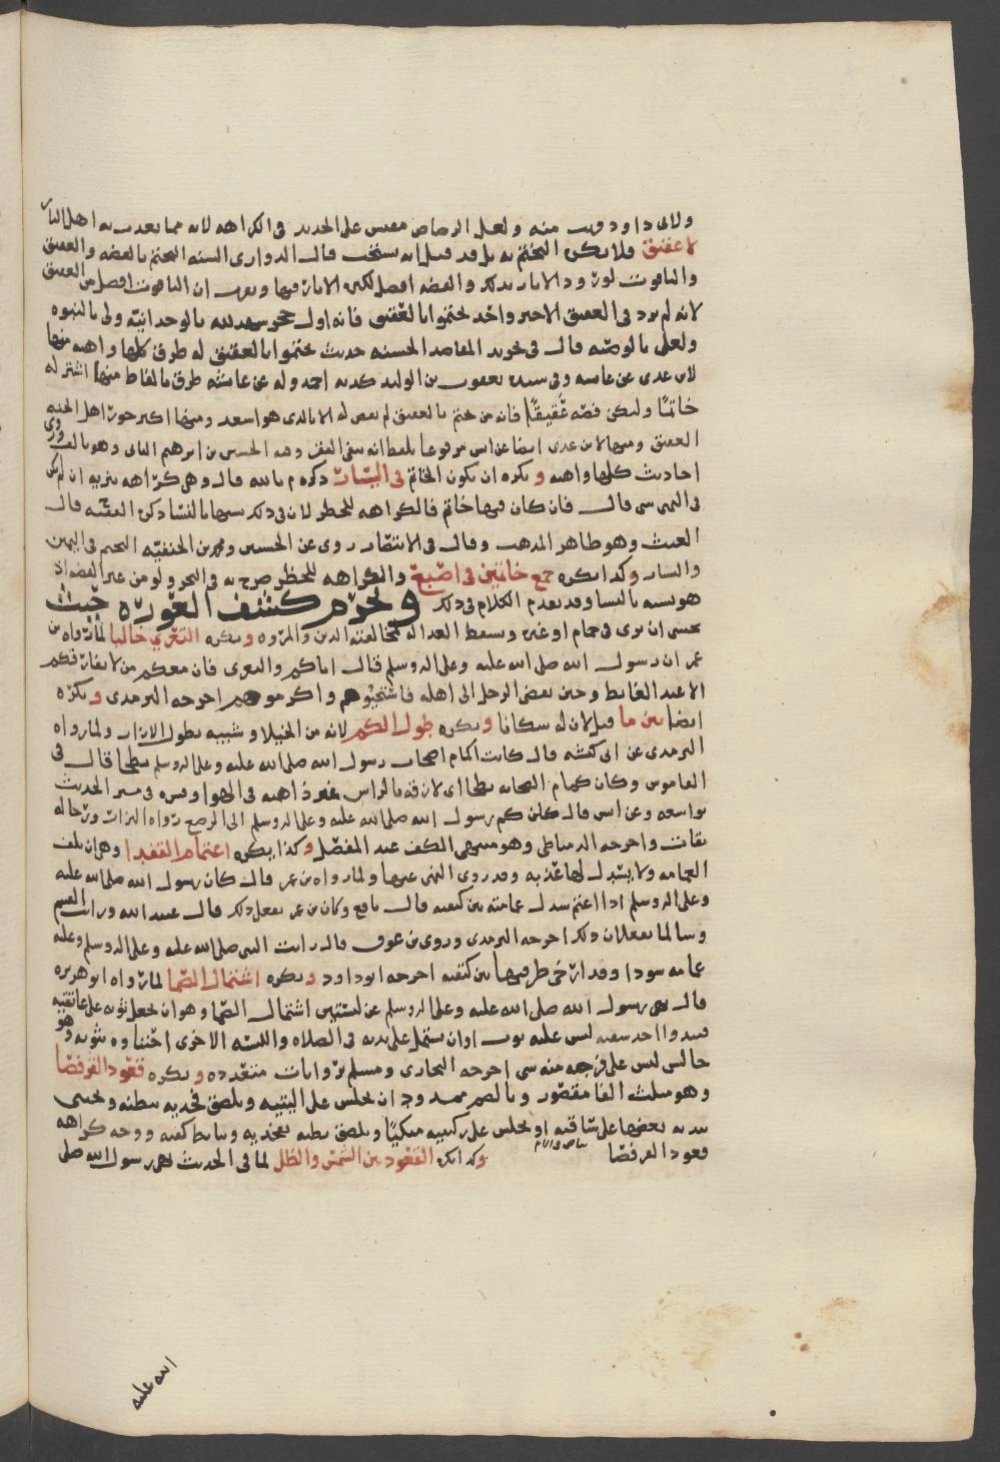 ولابى داود قريب منه ولعل الرصاص مقيس على الحديد فى الكراهه لانه مما يعذب به اهل النار
لا عقيق فلا يكره التختم به بل قد قيل انه يستحب قال الدوارى السنه التختم بالفضه والعقيق
والياقوت لورود الاثار بذلك والفضه افضل لكثره الاثار فيها وبعد ان الياقوت افضل من العقيق
لانه لم يرد فى العقيق الا خبر واحد تختموا بالعقيق فانه اول حجر شهد لله بالوحدانيه ولى بالنبوه
ولعلى بالوصيه قال فى تجريد المقاصد الحسنه حديث تختموا بالعقيق له طرق كلها واهيه منها
لابن عدى عن عائشه وفى سنده يعقوب بن الوليد كذبه احمد وله عن عائشه طرق بالفاظ منها اشتر له
خاتمًا وليكن فصه عقيقًا فانه من تختم بالعقيق لم يقض له الا بالذى هو اسعد ومنها اكثر خرز اهل الجنه
العقيق ومنها لابن عدى ايضا عن انس مرفوعا بلفظ انه ينفى الفقر وفيه الحسين بن ابرهيم البابى وهو
احاديث كلها واهيه ويكره ان يكون الخاتم فى اليسار ذكره م بالله قال وهى كراهه تنزيه ان لم يكن
فى اليمين شى قال فان كان فيها خاتم فالكراهه للحظر لان فى ذلك تشبها بالنسا ذكره الفقيه قال
الغيث وهو ظاهر المذهب وقال فى الانتصار روى عن الحسنين ومحمد بن الحنفيه التختم فى اليمين
واليسار وكذا يكره جمع خاتمين فى اصبع والكراهه للحظر صرح به فى البحر ولو من غير الفضه اذ
هو تشبه بالنسا وقد تقدم الكلام فى ذلك ويحرم كشف العوره حيث
يخشى ان يرى فى حمام او غيره ويسقط العداله لمخالفته الدين والمروه ويكره التعري خاليا لما رواه بن
عمر ان رسول الله صلى الله عليه وعلى اله وسلم قال اياكم والتعرى فان معكم من لا يفارقكم
الا عند الغايط وحين يفضى الرجل الى اهله فاستحيوهم واكرموهم اخرجه الترمذى ويكره
ايضا بين ما قيل لان له سكانا ويكره طول الكم لانه من الخيلا وشبيه بطول الازار ولما رواه
الترمذى عن ابى كبشه قال كانت اكمام اصحاب رسول الله صلى الله عليه وعلى اله وسلم بطحا قال فى
القاموس وكان كمام الصحابه بطحا اى لازقه بالراس غير ذاهبه فى الهوا وفسره فى الحديث
بواسعه وعن انس قال كان كم رسول الله صلى الله عليه وعلى اله وسلم الى الرصغ رواه البزار ورجاله
ثقات واخرجه الدمياطى وهو منتهى الكف عند المفصل وكذا يكره اعتمام القفدا وهى ان يلف
العمامه ولا يسدل لها عذبه وقد روى النهى عنها ولما رواه بن عمر قال كان رسول الله صلى الله عليه
وعلى اله وسلم اذا اعتم سدل عمامته بين كتفيه قال نافع وكان بن عمر يفعل ذلك قال عبيد الله ورايت القسم
وسالما يفعلان ذلك اخرجه الترمذى وروى بن عوف قال رايت النبى صلى الله عليه وعلى اله وسلم وعليه
عمامه سودا وقد ارخى طرفيها بين كتفيه اخرجه ابو داود ويكره اشتمال الصما لما رواه ابو هريره
قال نهى رسول الله صلى الله عليه وعلى اله وسلم عن لبستين اشتمال الصما وهو ان يجعل ثوبه على عاتقيه
فيبدوا احد شقيه ليس عليه ثوب او ان يشتمل على يديه فى الصلاه واللبسه الاخرى احتباوه بثوبه وهو
جالس ليس على فرجه منه شى اخرجه البخارى ومسلم بروايات متعدده ويكره قعود القرفصا
وهو مثلث الفا مقصور وبالضم ممدود ان يجلس على اليتيه ويلصق فخذيه ببطنه ويحتبى
بيديه يضعهما على ساقيه او يجلس على ركبتيه منكبًا ويلصق بطنه بفخذيه ويتابط كفيه ووجه كراهه
قعود القرفصا وكذا يكره القعود بين الشمس والظل لما فى الحديث نهى رسول الله صلى
الله عليه